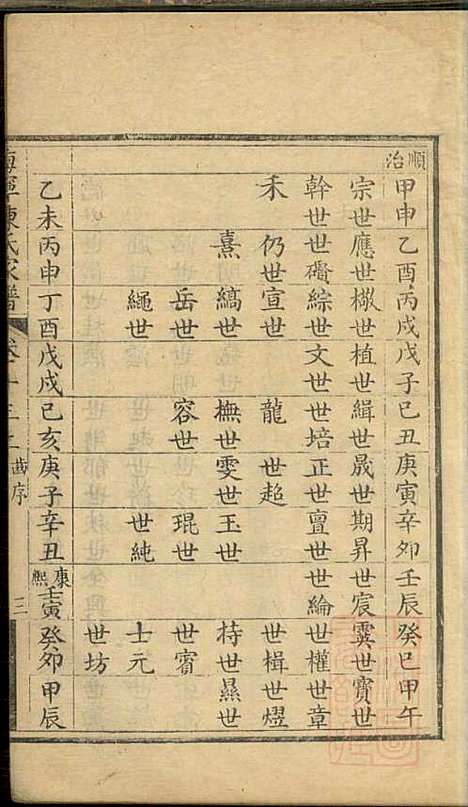 順治
甲申乙酉丙戌戊子己丑庚寅辛卯壬辰癸巳甲午
宗世應世橔世植世緝世晟世期昇世宸霙世寶世
幹世世礥綜世文世世培正世亶世世綸世權世章
禾 仍世宣世 龍 世超 世楫世煜
熹世縞世 橅世雯世玉世 持世㬎世
岳世 容世 琨世 世賓
繩世 世純 士元
世坊
乙未丙申丁酉戊戌己亥庚子辛丑康熙壬寅癸卯甲辰
海寧陳氏家譜 卷十三 齒序 三